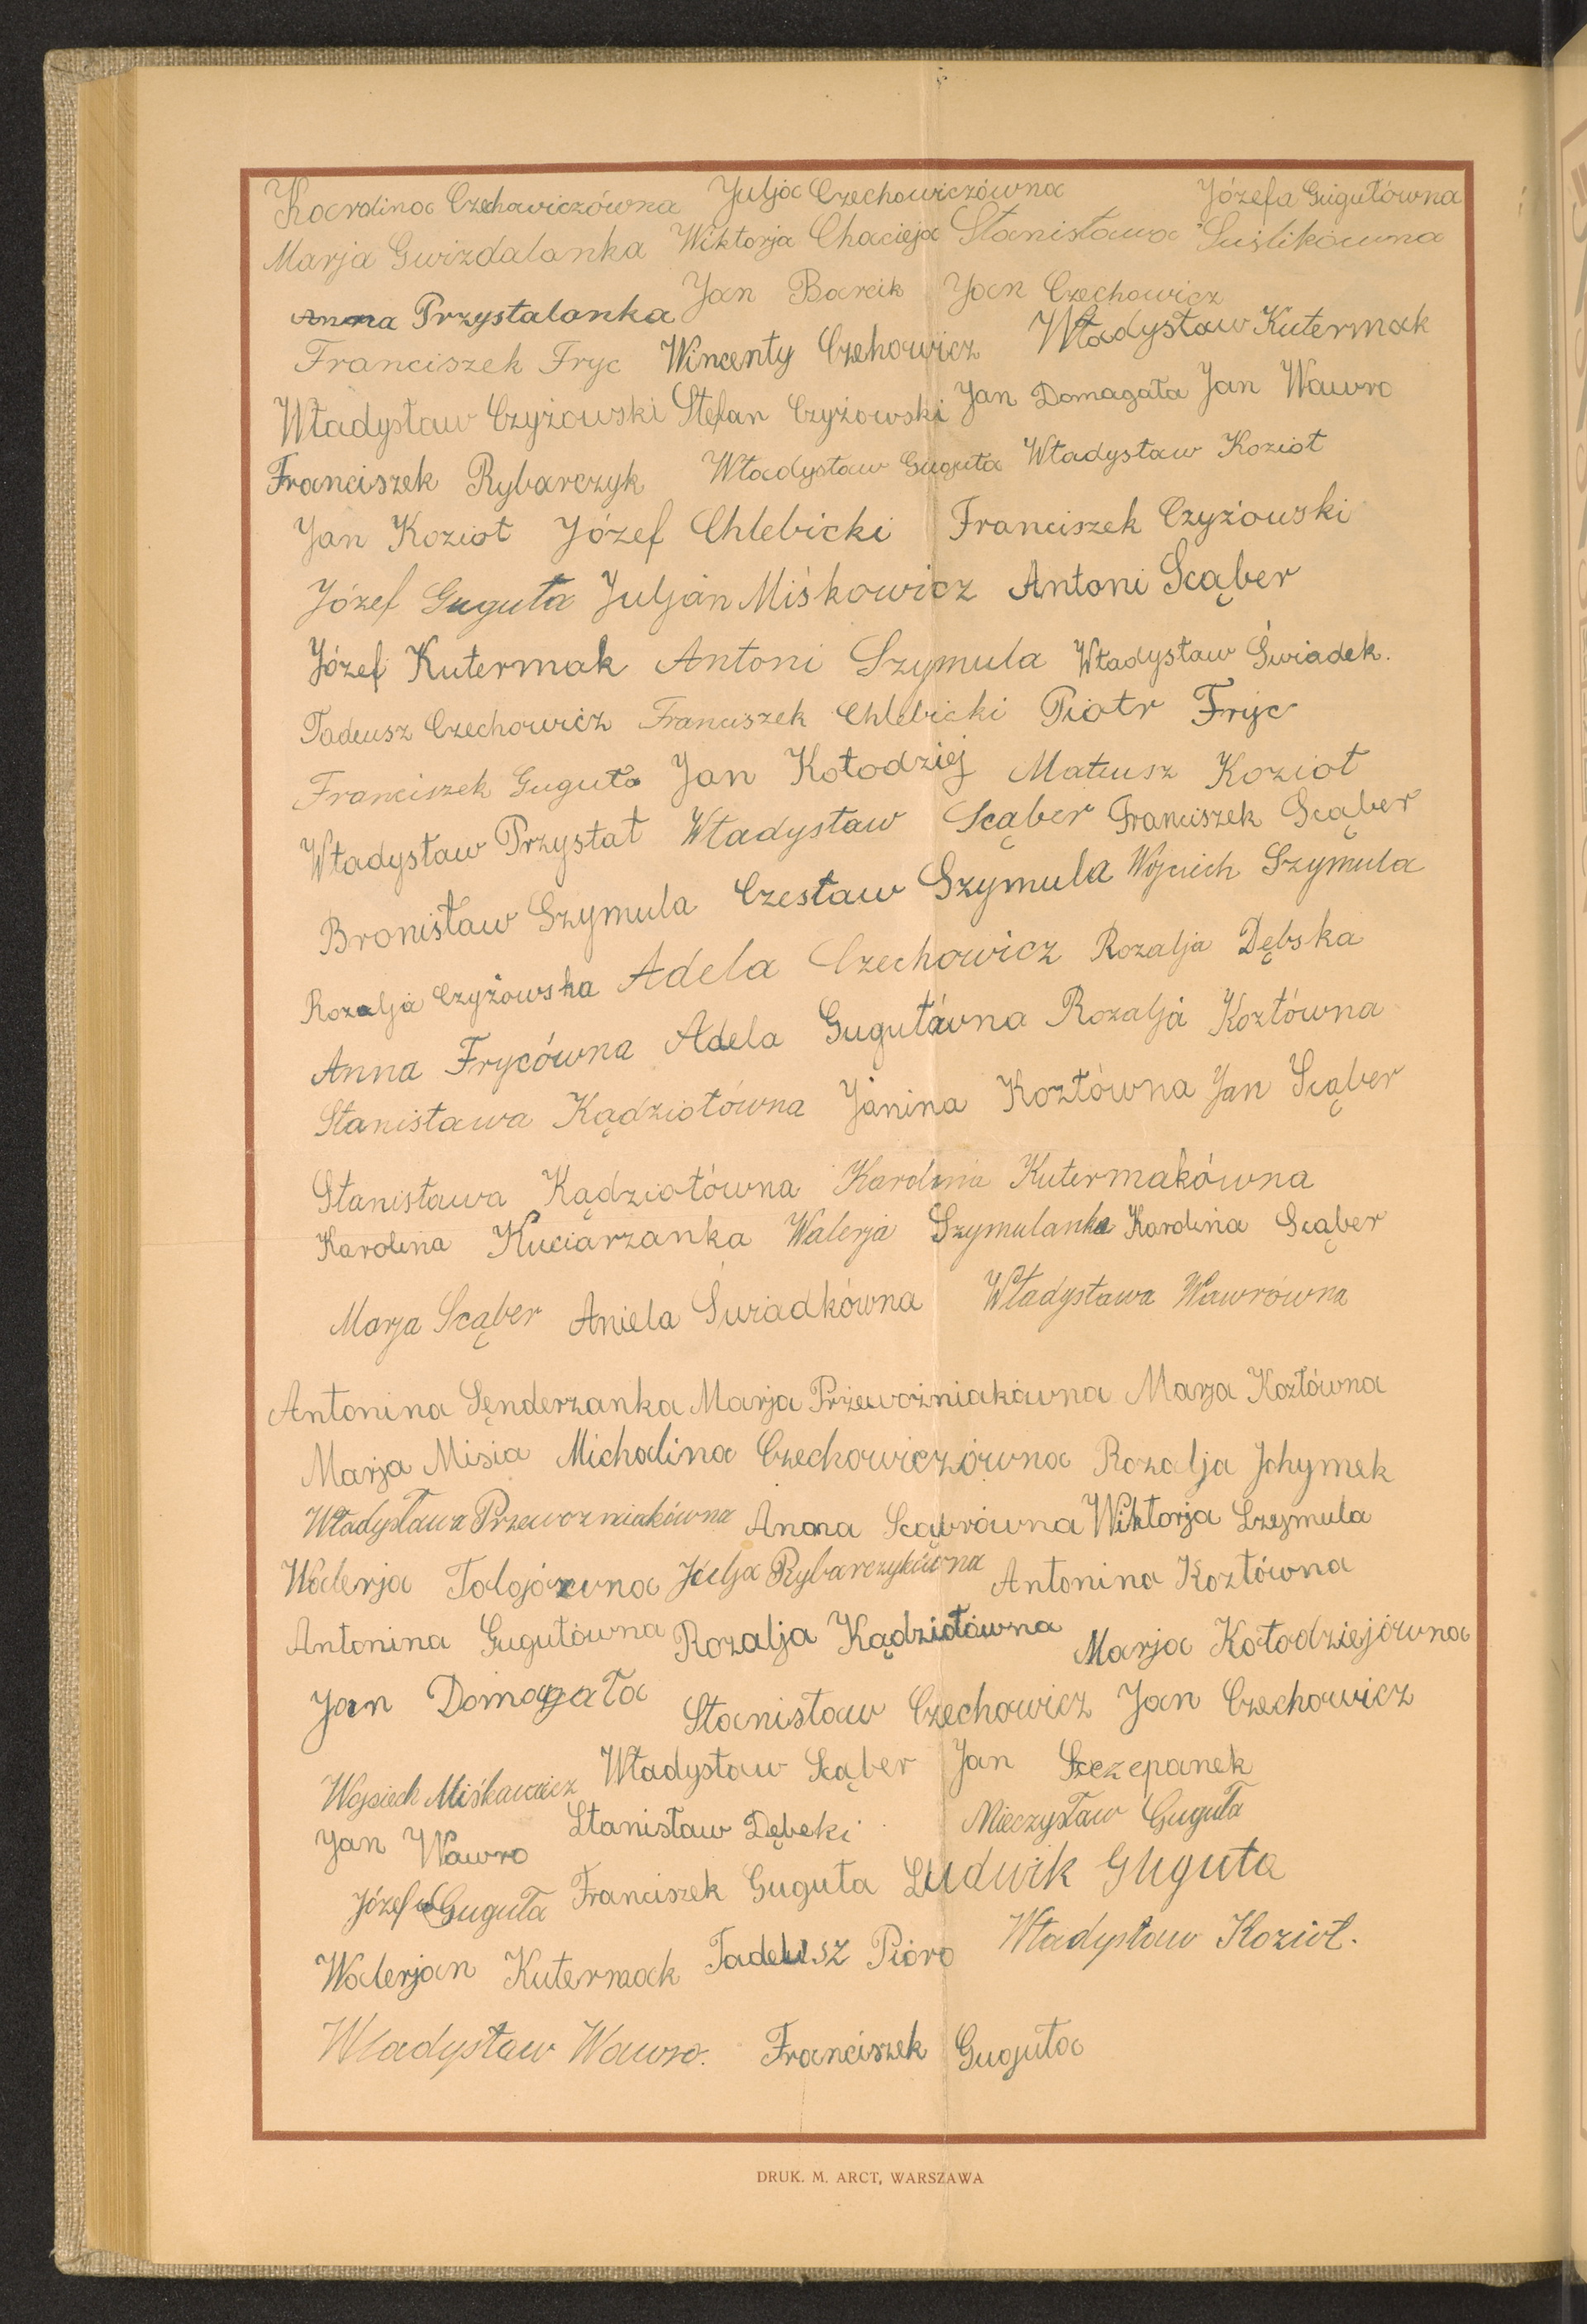 Karolina Czechowiczówna Julja Czechowiczówna Józefa Gugułówna
Marja Gwizdalanka Wiktorja Chacieja Stanisława Suślikówna
Anna Przystalanka Jan Barcik Jan Czechowicz
Franciszek Fryc Wincenty Czehowicz Władysław Kutermak
Władysław Czyżowski Stefan Czyżowski Jan Domagała Jan Wawro
Franciszek Rybarczyk Władysław Guguła Władysław Kozioł
Jan Kozioł Józef Chlebicki Franciszek Czyżowski
Józef Guguła Juljan Miśkowicz Antoni Scąber
Józef Kutermak Antoni Szymula Władysław Świadek.
Tadeusz Czechowicz Franciszek Chlebicki Piotr Fryc
Franciszek Guguła Jan Kołodziej Mateusz Kozioł
Władysław Przystał Władysław Scąber Franciszek Scąber
Bronisław Szymula Czesław Szymula Wojciech Szymula
Rozalja Czyżowska Adela Czechowicz Rozalja Dębska
Anna Frycówna Adela Gugułówna Rozalja Kozłówna
Stanisława Kądziołówna Janina Kozłówna Jan Scąber
Stanisława Kądziołówna Karolina Kutermakówna
Karolina Kuciarzanka Walerja Szymulanka Karolina Scąber
Marja Scąber Aniela Świadkówna Władysława Wawrówna
Antonina Sęnderzanka Marja Przewoźniakówna Marja Kozłówna
Marja Misia Michalina Czechowiczówna Rozalja Jchymek
Władysława Przewozniakówna Anna Scąbrówna Wiktorja Szymula
Walerja Tologówna Julja Rybarczykówna Antonina Kozłówna
Antonina Gugułówna Rozalja Kądziołówna Marja Kołodziejówna
Jan Domagała Stanisław Czechowicz Jan Czechowicz
Wojciech Miśkowicz Władysław Scąber Jan Szczepanek
Jan Wawro Stanisław Dębski Mieczysław Guguła
Józef Guguła Franciszek Guguła Ludwik Guguła
Walerjan Kutermak Tadeusz Pióro Władysław Kozioł.
Władysław Wawro. Franciszek Guguła
DRUK. M. ARCT, WARSZAWA